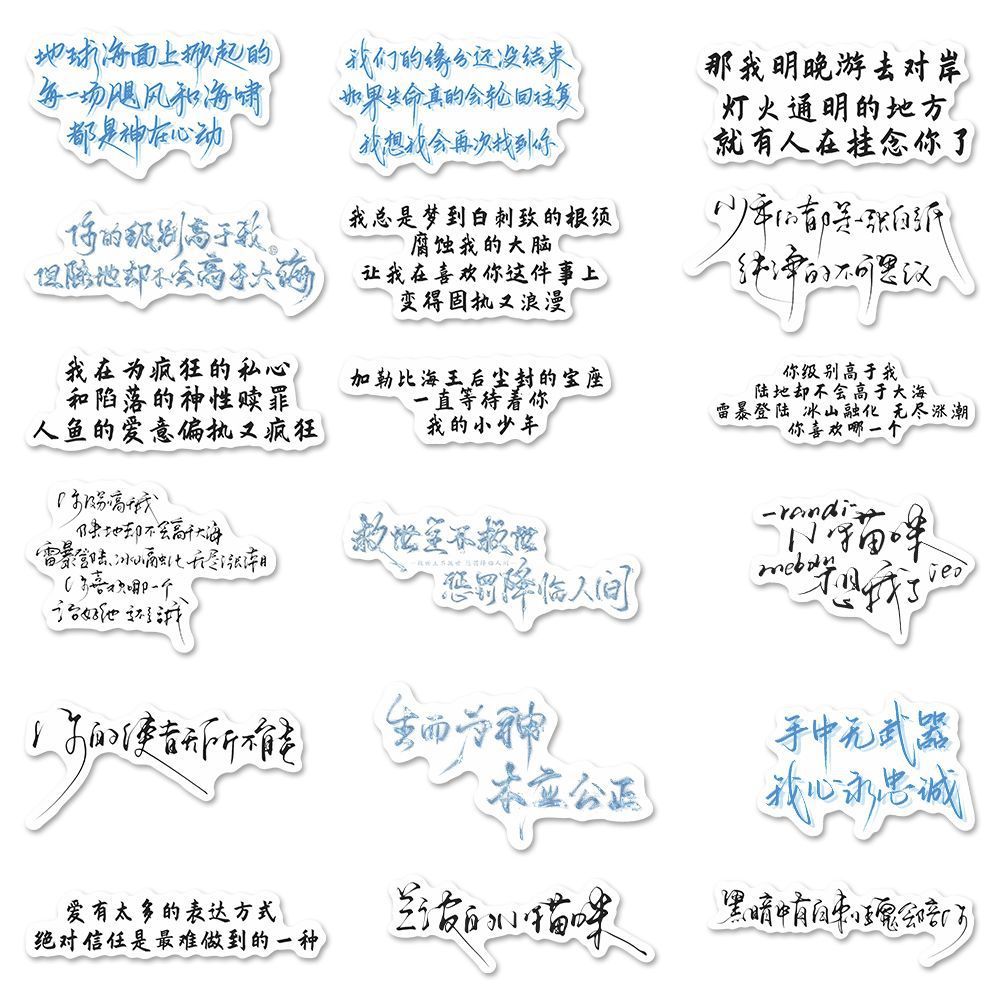 地球海面上掀起的
每一场飓风和海啸
都是神在心动
我们的缘分还没结束
如果生命真的会轮回往复
我想我会再次找到你
那我明晚游去对岸
灯火通明的地方
就有人在挂念你了
你的级别高于我
但陆地却不会高于大海
我总是梦到白刺致的根须
腐蚀我的大脑
让我在喜欢你这件事上
变得固执又浪漫
少年的都是一张白纸
纯净的不可思议
我在为疯狂的私心
和陷落的神性赎罪
人鱼的爱意偏执又疯狂
加勒比海王后尘封的宝座
一直等待着你
我的小少年
你级别高于我
陆地却不会高于大海
雷暴登陆 冰山融化 无尽涨潮
你喜欢哪一个
你级别高于我
陆地却不会高于大海
雷暴登陆 冰山融化 无尽涨潮
你喜欢哪一个
救世主不救世
惩罚降临人间
-randi
小猫咪
mebon
想我了
ieo
你的使者无所不能
生而为神
本应公正
手中无武器
我心永忠诚
爱有太多的表达方式
绝对信任是最难做到的一种
兰波的小猫咪
黑暗中有白刺玫瑰会陪你